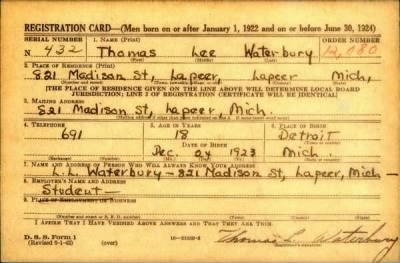 REGISTRATION CARD—(Men born on or after January 1, 1922 and on or before June 30, 1924)
SERIAL NUMBER 1. NAME (Print) ORDER NUMBER
N 432 Thomas Lee Waterbury 12,080
(First) (Middle) (Last)
2. PLACE OF RESIDENCE (Print)
821 Madison St, Lapeer, Lapeer Mich,
[THE PLACE OF RESIDENCE GIVEN ON THE LINE ABOVE WILL DETERMINE LOCAL BOARD
JURISDICTION; LINE 2 OF REGISTRATION CERTIFICATE WILL BE IDENTICAL]
3. MAILING ADDRESS
821 Madison St, Lapeer, Mich.
4. TELEPHONE 5. AGE IN YEARS 6. PLACE OF BIRTH
691 18 Detroit
DATE OF BIRTH
Dec. 24 1923 Mich.
7. NAME AND ADDRESS OF PERSON WHO WILL ALWAYS KNOW YOUR ADDRESS
L.L. Waterbury - 821 Madison St, Lapeer, Mich -
8. EMPLOYER'S NAME AND ADDRESS
Student -
9. PLACE OF EMPLOYMENT OR BUSINESS
I AFFIRM THAT I HAVE VERIFIED ABOVE ANSWERS AND THAT THEY ARE TRUE.
D. S. S. Form 1
(Revised 6-1-42) (over) Thomas L. Waterbury